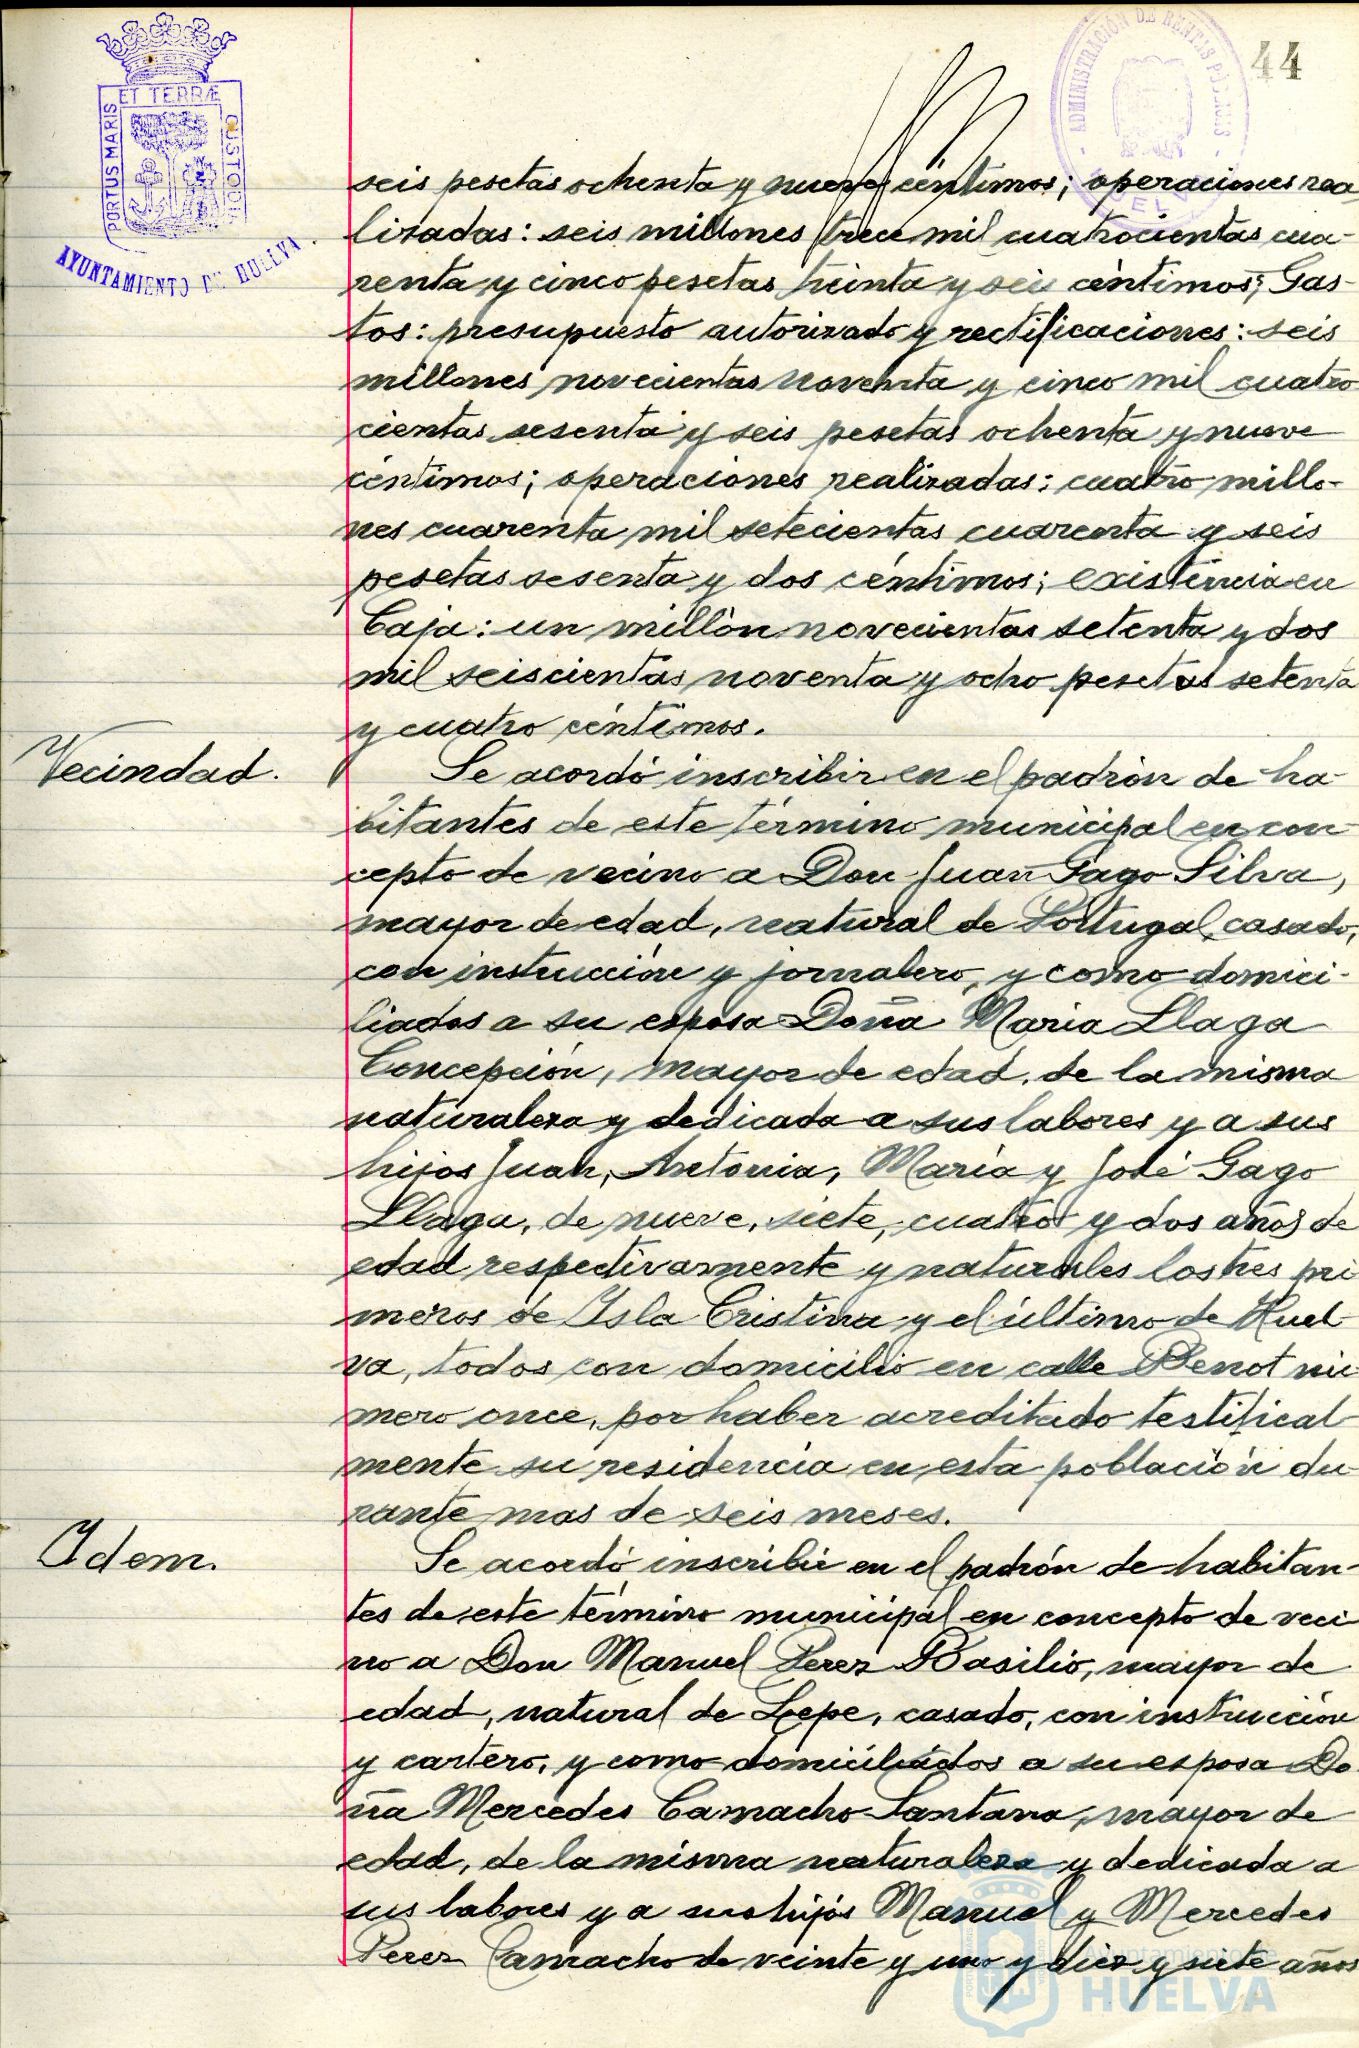 44
ET TERRÆ
PORTUS MARIS
CUSTODIA
AYUNTAMIENTO DE HUELVA
ADMINISTRACIÓN DE RENTAS PÚBLICAS
HUELVA
seis pesetas ochenta y nueve céntimos; operaciones rea-
lizadas: seis millones trece mil cuatrocientas cua-
renta y cinco pesetas treinta y seis céntimos; Gas-
tos: presupuesto autorizado y rectificaciones: seis
millones novecientas noventa y cinco mil cuatro
cientas sesenta y seis pesetas ochenta y nueve
céntimos; operaciones realizadas: cuatro millo-
nes cuarenta mil setecientas cuarenta y seis
pesetas sesenta y dos céntimos; existencia en
Caja: un millón novecientas setenta y dos
mil seiscientas noventa y ocho pesetas setenta
y cuatro céntimos.
Vecindad.
Se acordó inscribir en el padrón de ha-
bitantes de este término municipal en con-
cepto de vecino a Don Juan Gago Silva,
mayor de edad, natural de Portugal, casado,
con instrucción y jornalero, y como domici-
liados a su esposa Doña Maria Llaga
Concepción, mayor de edad, de la misma
naturaleza y dedicada a sus labores y a sus
hijos Juan, Antonia, María y José Gago
Llaga, de nueve, siete, cuatro y dos años de
edad respectivamente y naturales los tres pri
meros de Isla Cristina y el último de Huel-
va, todos con domicilio en calle Benot nú-
mero once, por haber acreditado testifical-
mente su residencia en esta población du-
rante mas de seis meses.
Idem.
Se acordó inscribir en el padrón de habitan-
tes de este término municipal en concepto de veci
no a Don Manuel Perez Basilio, mayor de
edad, natural de Lepe, casado, con instrucción
y cartero, y como domiciliados a su esposa Do
ña Mercedes Camacho Santana, mayor de
edad, de la misma naturaleza y dedicada a
sus labores y a sus hijos Manuel y Mercedes
Perez Camacho de veinte y uno y diez y siete años
Ayuntamiento de
HUELVA